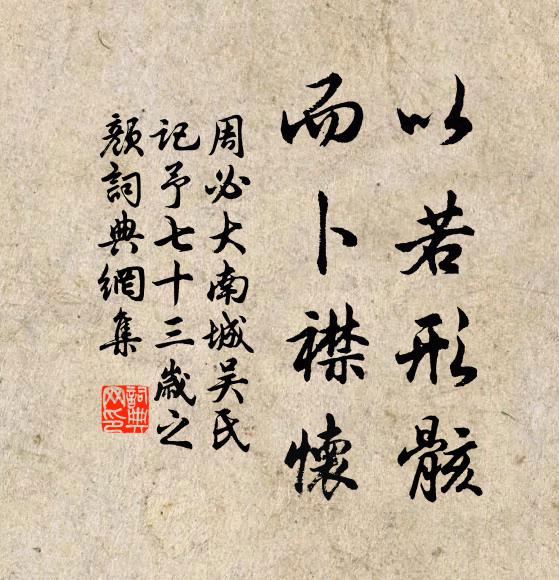 以若形骸
而卜襟懷
周必大南城吴氏
记予七十三歲之
顏詞典網集
詞典网印